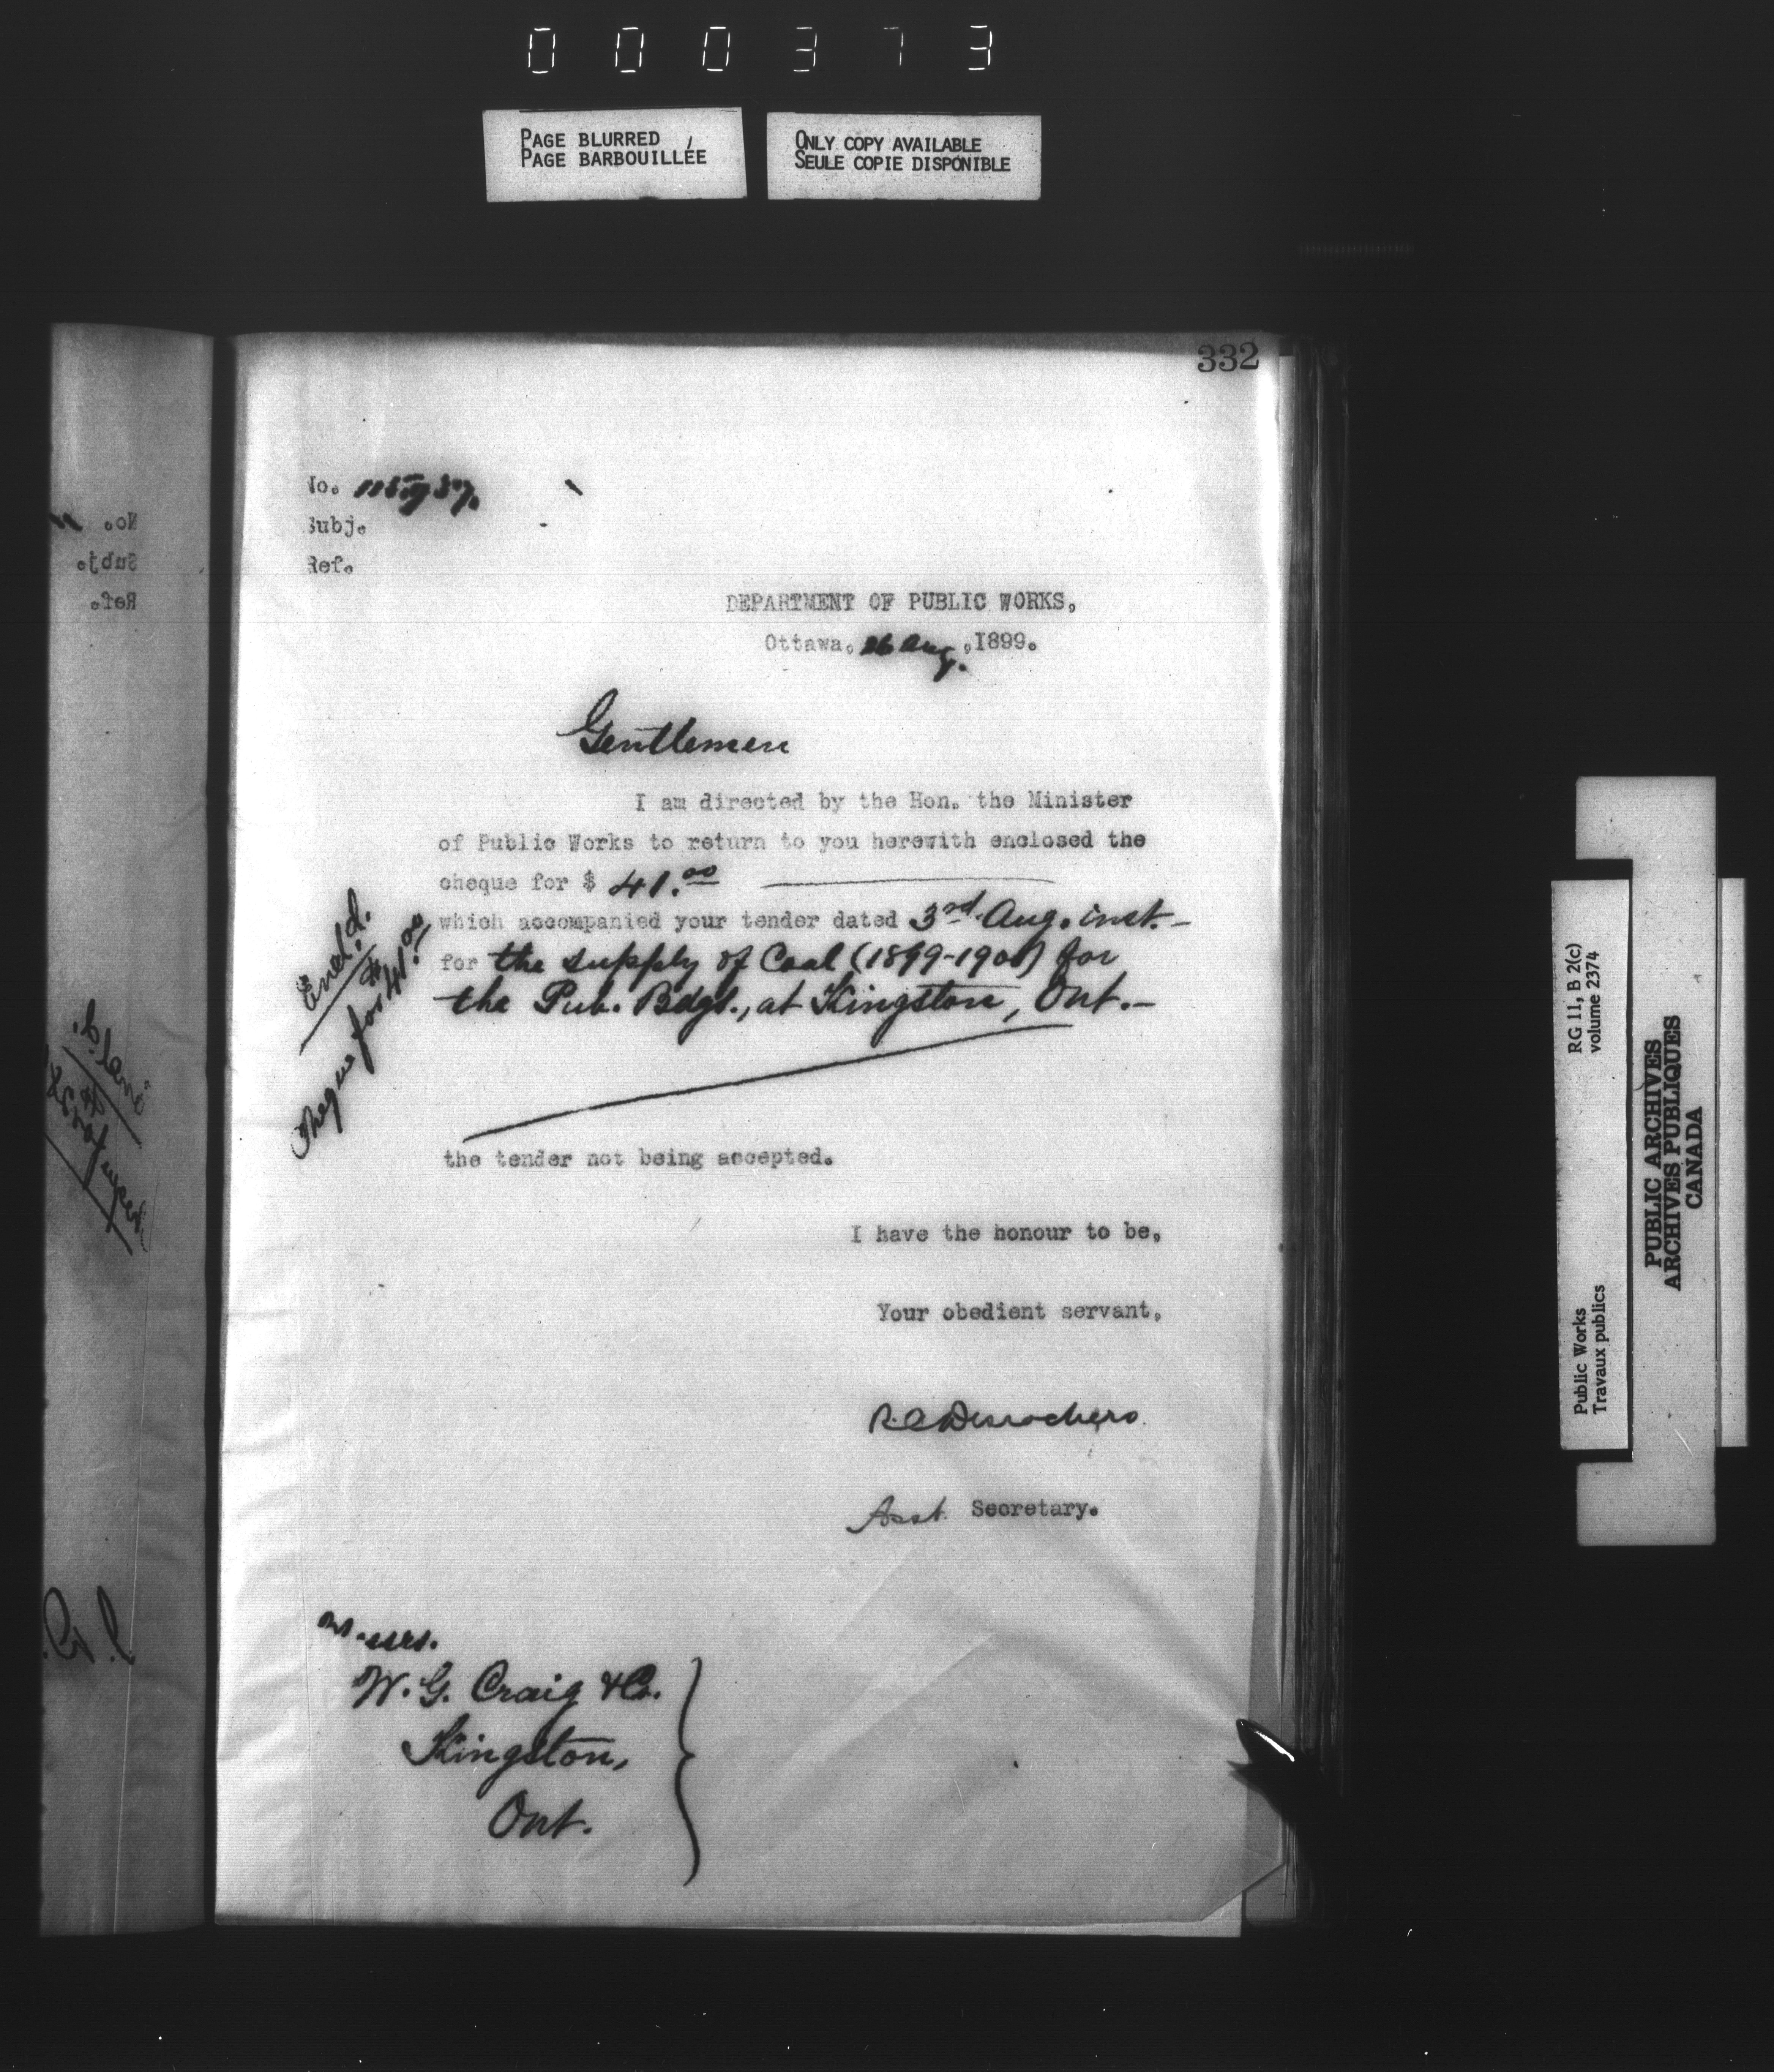 000373
PAGE BLURRED
PAGE BARBOUILLÉE
ONLY COPY AVAILABLE
SEULE COPIE DISPONIBLE
332
No.
Subj.
Ref.
DEPARTMENT OF PUBLIC WORKS,
Ottawa, 26 Aug. ,1899.
Gentlemen
I am directed by the Hon. the Minister
of Public Works to return to you herewith enclosed the
cheque for $ 41.00
which accompanied your tender dated 3rd. Aug. inst.-
for the supply of Coal (1899-1900) for
the Pub. Bdgs., at Kingston, Ont.-
Encld.
Cheque for $41.00
the tender not being accepted.
I have the honour to be,
Your obedient servant,
R.C. Desrochers
Asst. Secretary.
Messrs.
W. G. Craig & Co.
Kingston,
Ont.
No.
Subj.
Ref.
Public Works
Travaux publics
RG 11, B 2(c)
volume 2374
PUBLIC ARCHIVES
ARCHIVES PUBLIQUES
CANADA